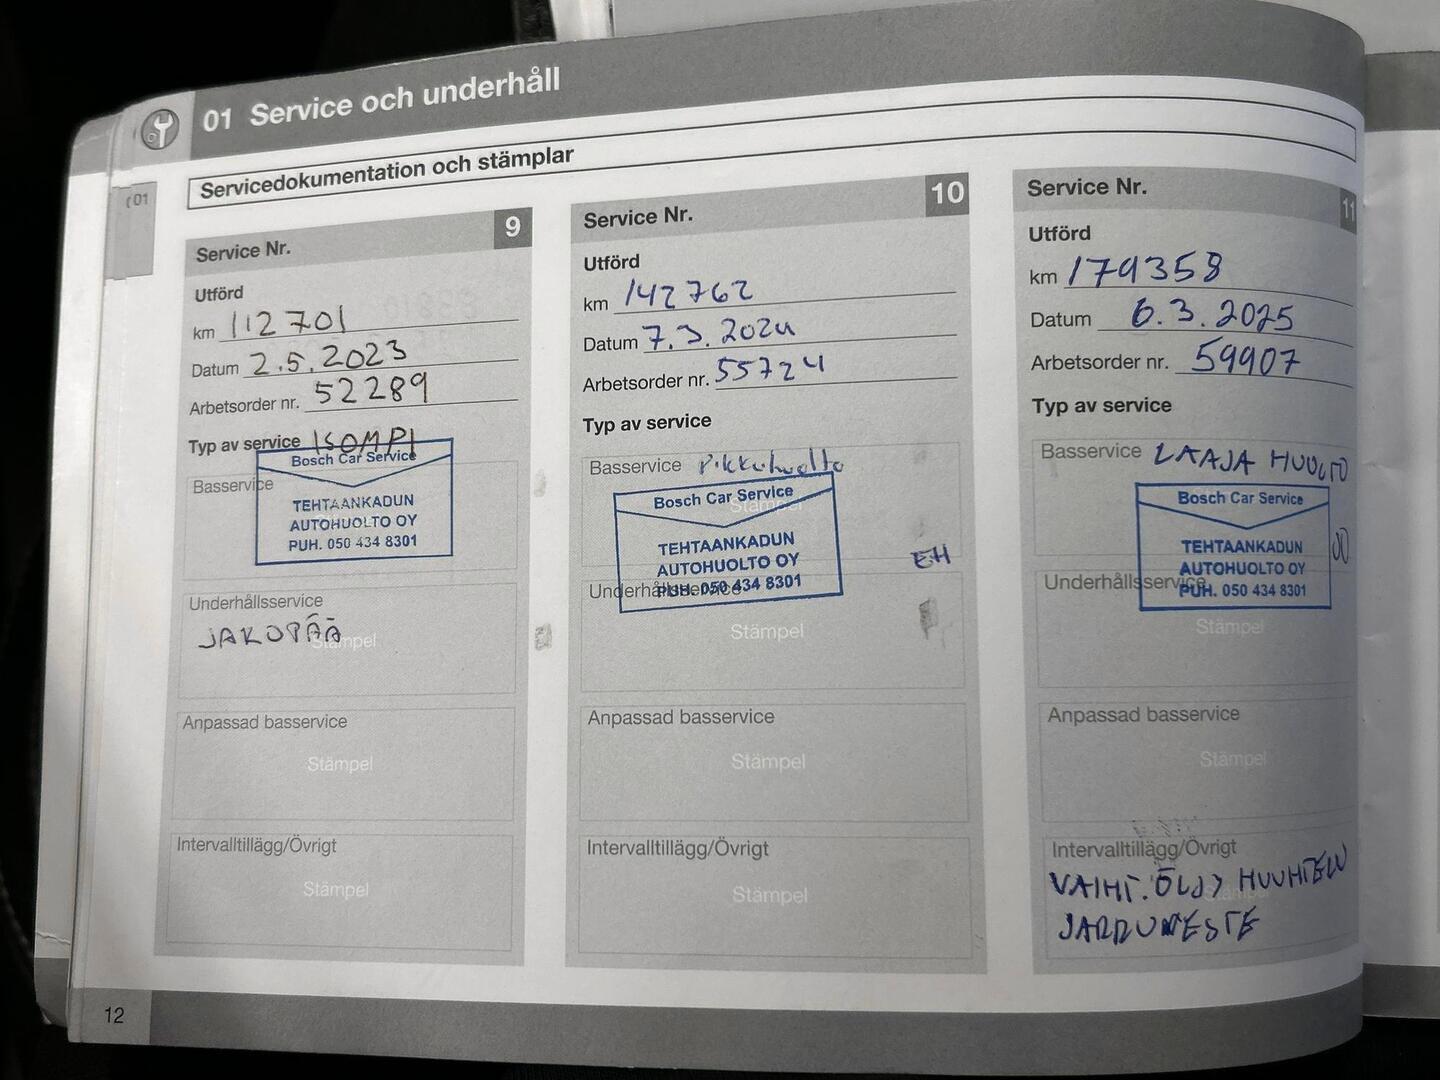 01 Service och underhåll
Servicedokumentation och stämplar
01
Service Nr. 9
Utförd
km 112701
Datum 2.5.2023
Arbetsorder nr. 52289
Typ av service ISOMPI
Basservice
Bosch Car Service
TEHTAANKADUN
AUTOHUOLTO OY
PUH. 050 434 8301
Underhållsservice
JAKOPÄÄ
Stämpel
Anpassad basservice
Stämpel
Intervalltillägg/Övrigt
Stämpel
Service Nr. 10
Utförd
km 142762
Datum 7.3.2024
Arbetsorder nr. 55724
Typ av service
Basservice Pikkuhuolto
Stämpel
Bosch Car Service
TEHTAANKADUN
AUTOHUOLTO OY
PUH. 050 434 8301
EH
Underhållsservice
Stämpel
Anpassad basservice
Stämpel
Intervalltillägg/Övrigt
Stämpel
Service Nr. 11
Utförd
km 179358
Datum 6.3.2025
Arbetsorder nr. 59907
Typ av service
Basservice LAAJA HUOLTO
Bosch Car Service
TEHTAANKADUN
AUTOHUOLTO OY
PUH. 050 434 8301
Underhållsservice
Stämpel
Anpassad basservice
Stämpel
Intervalltillägg/Övrigt
VAIHT. ÖLJY HUUHTELU
Stämpel
JARRUNESTE
12